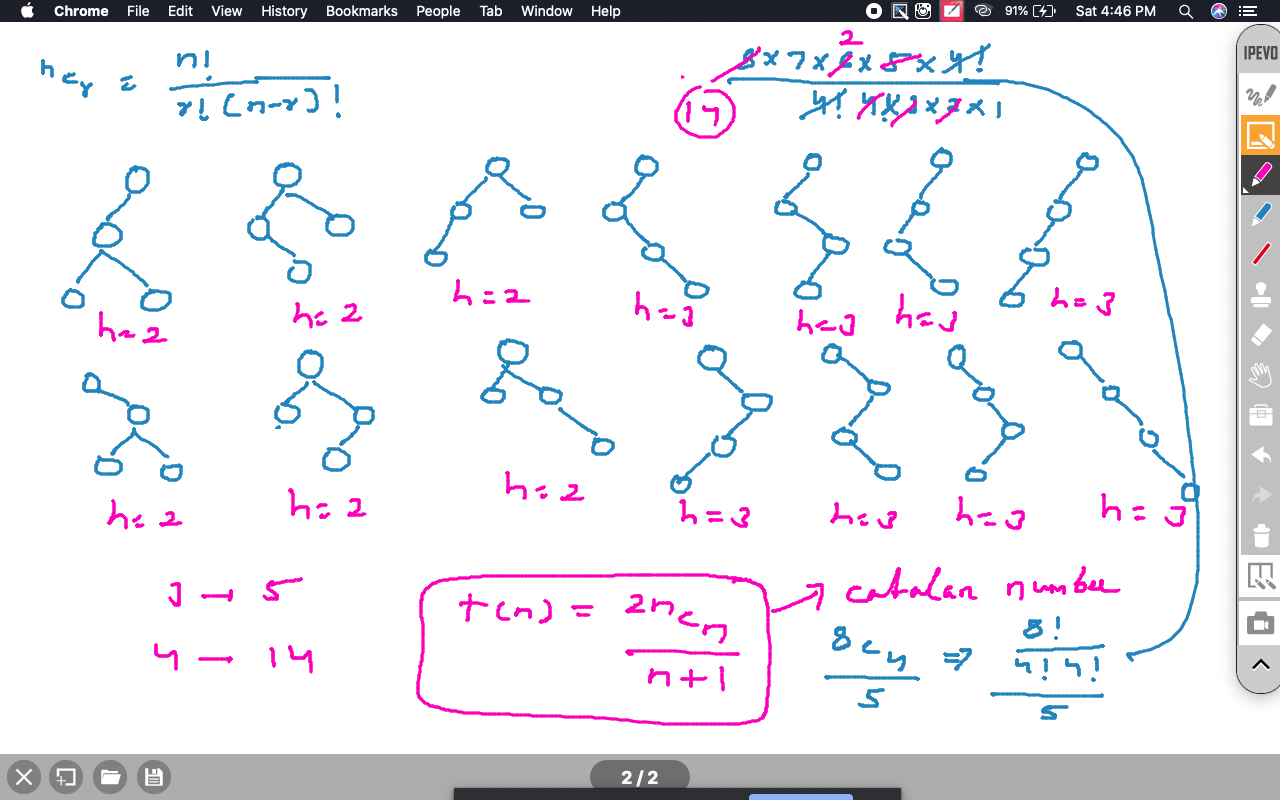 Chrome File Edit View History Bookmarks People Tab Window Help 91% Sat 4:46 PM
IPEVO
nCr = n! / r! (n-r)!
2
8 x 7 x 6 x 5 x 4! / 4! 4 x 3 x 2 x 1
14
h=2 h=2 h=2 h=3 h=3 h=3 h=3
h=2 h=2 h=2 h=3 h=3 h=3 h=3
3 → 5
4 → 14
t(n) = 2nCn / n+1
→ catalan number
8C4 / 5 => 8! / 4! 4! / 5
2 / 2